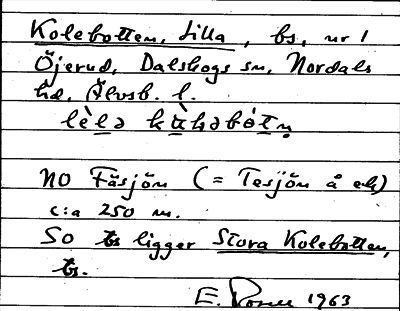 Kolebotten, Lilla, bs, nr 1
Öjerud, Dalskogs sn, Nordals
hd, Älvsb. l.
lèlə kùləbòtn̥
NO Fäsjön (= Tesjön å ek)
c:a 250 m.
SO ts ligger Stora Kolebotten,
ts.
E. 1963